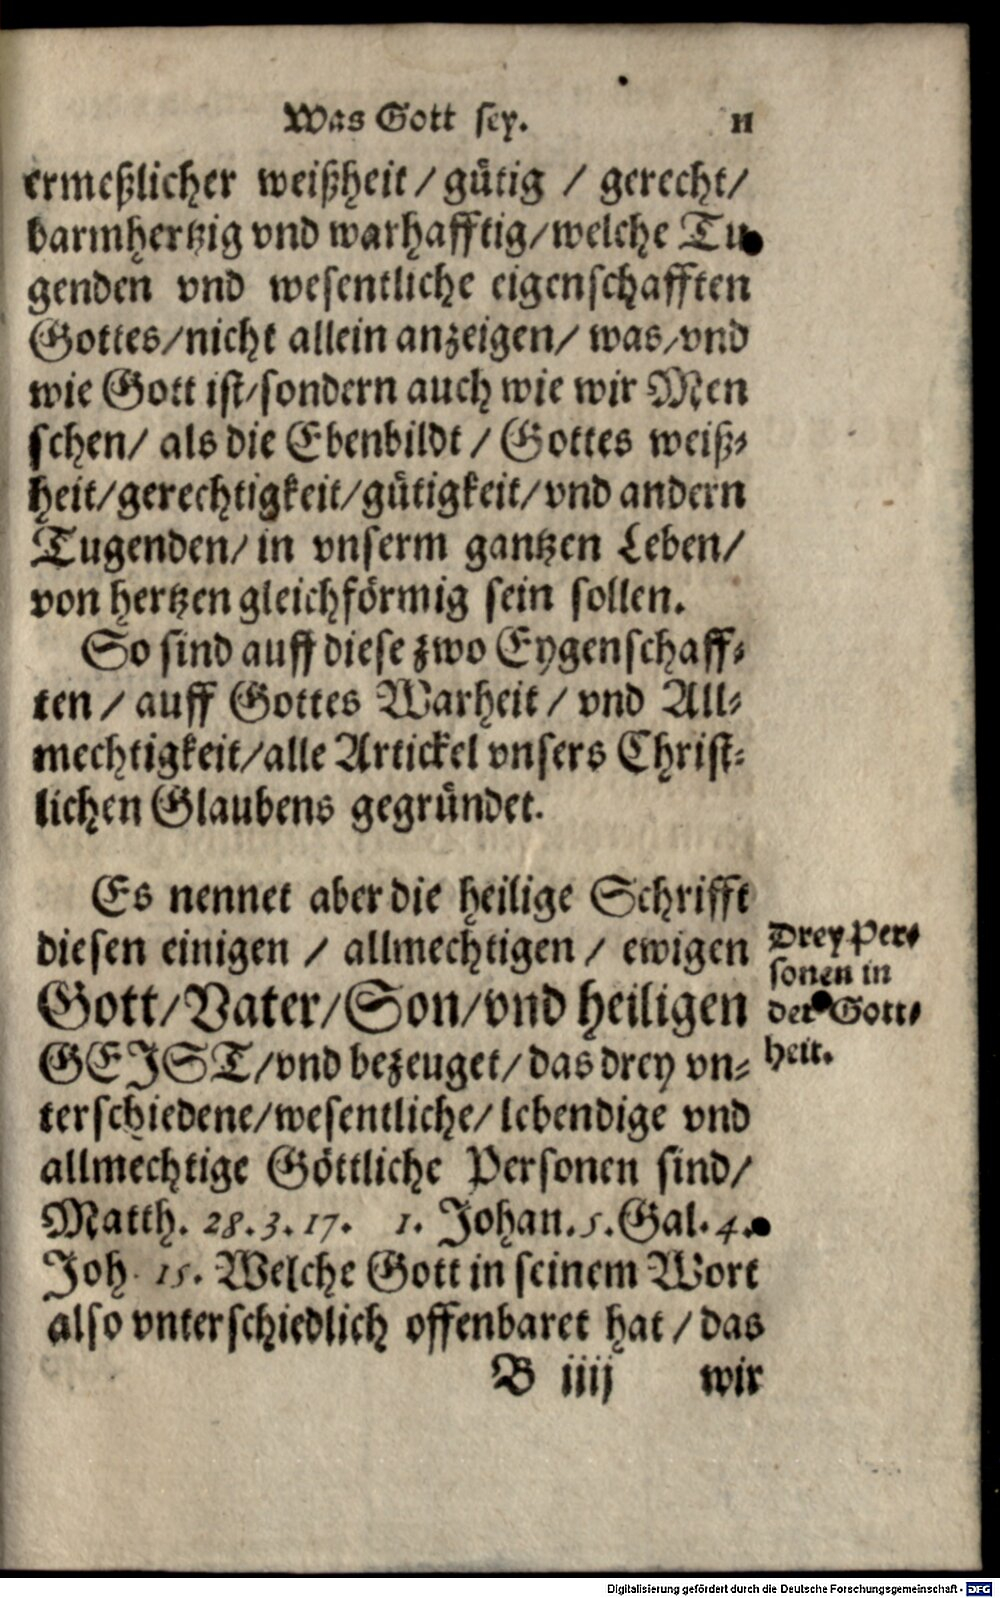 Was Gott sey. 11
ermeßlicher weißheit / gütig / gerecht/
barmhertzig vnd warhafftig/welche Tu
genden vnd wesentliche eigenschafften
Gottes/nicht allein anzeigen/ was/vnd
wie Gott ist/sondern auch wie wir Men
schen/ als die Ebenbildt / Gottes weiß-
heit/gerechtigkeit/gütigkeit/vnd andern
Tugenden/ in vnserm gantzen Leben/
von hertzen gleichförmig sein sollen.
So sind auff diese zwo Eygenschaff-
ten / auff Gottes Warheit / vnd All-
mechtigkeit/alle Artickel vnsers Christ-
lichen Glaubens gegründet.
Es nennet aber die heilige Schrifft
diesen einigen / allmechtigen / ewigen
Gott/Vater/Son/vnd heiligen
GEIST/vnd bezeuget/das drey vn-
terschiedene/wesentliche/lebendige vnd
allmechtige Göttliche Personen sind/
Matth. 28.3.17. 1. Johan.5.Gal.4.
Joh. 15. Welche Gott in seinem Wort
also vnterschiedlich offenbaret hat / das
B iiij wir
Drey Per-
sonen in
der Gott-
heit.
Digitalisierung gefördert durch die Deutsche Forschungsgemeinschaft - DFG